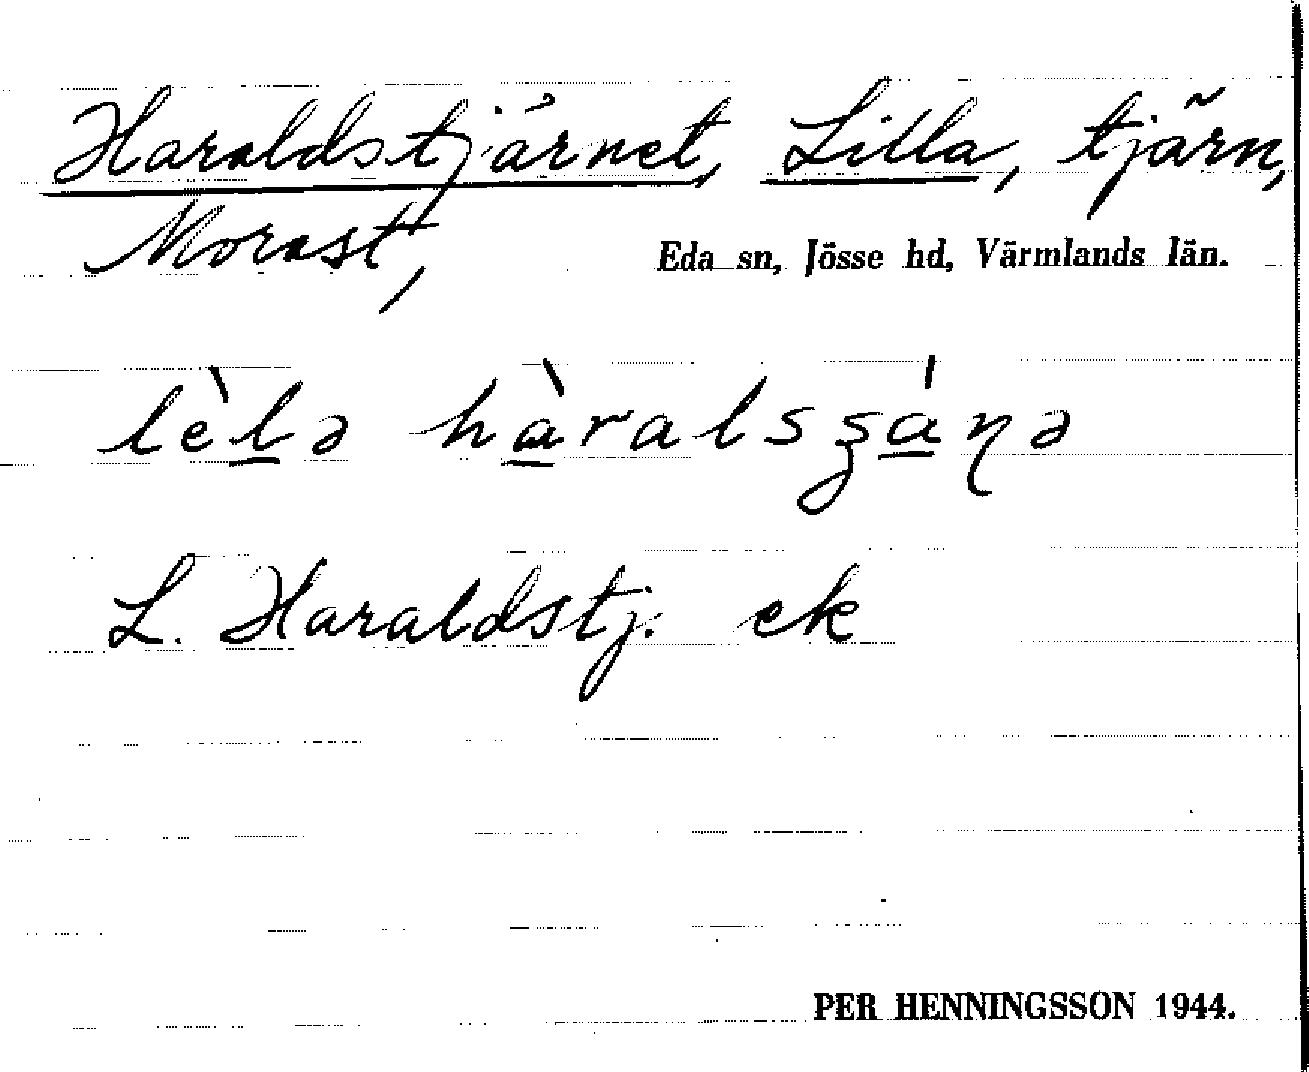 Haraldstjärnet, Lilla, tjärn,
Morast,
Eda sn, Jösse hd, Värmlands län.
lèlə hàralsʂáɳə
L. Haraldstj. ek
PER HENNINGSSON 1944.